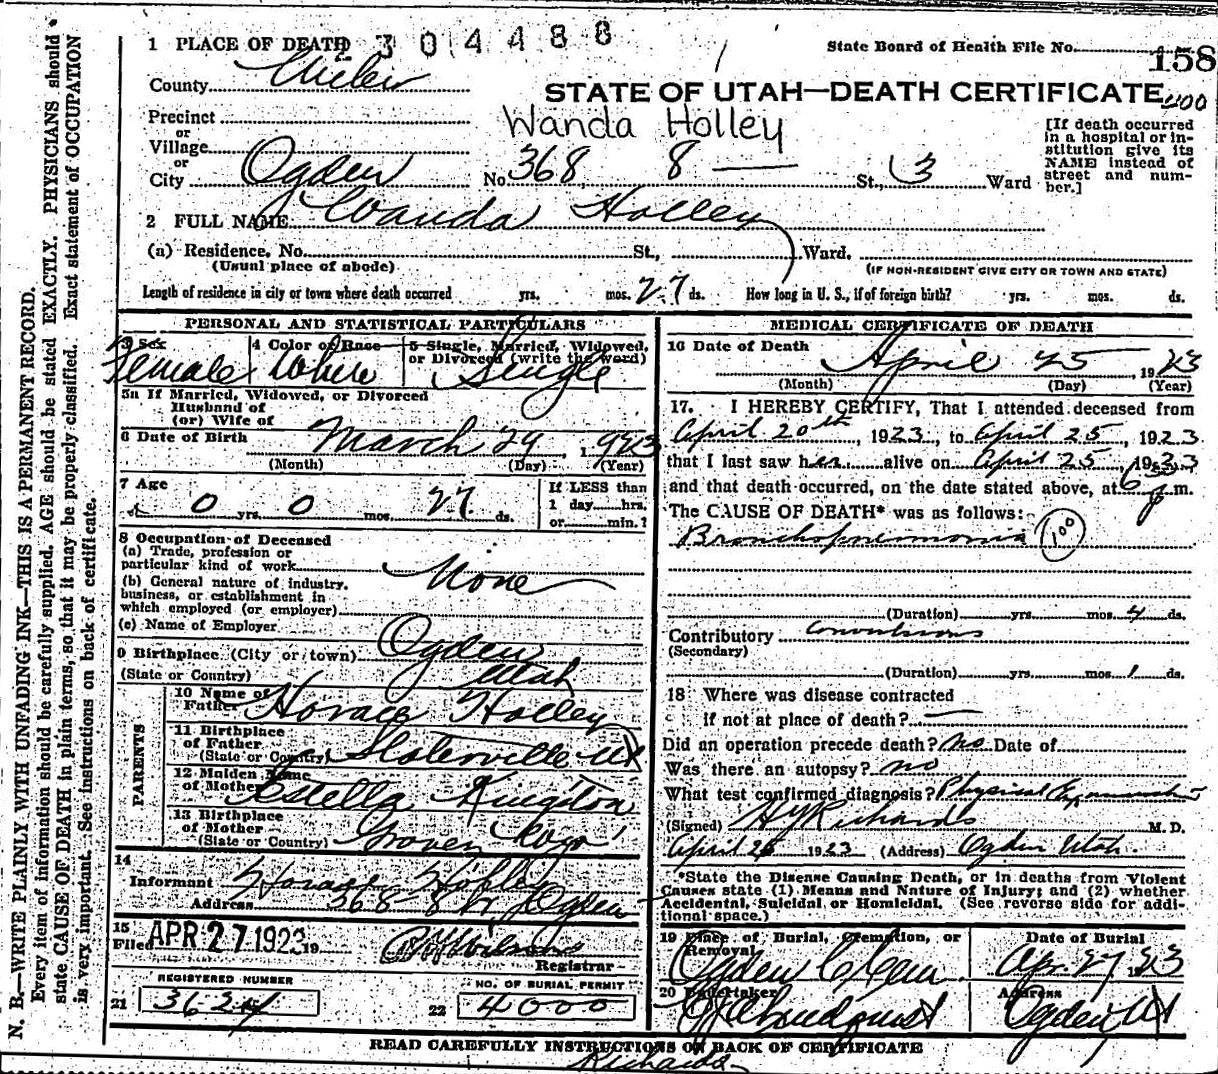 1 PLACE OF DEATH 304486 State Board of Health File No. 158
County Weber
STATE OF UTAH—DEATH CERTIFICATE 400
Precinct
or
Village
or
City Ogden No. 368 8 — St., 3 Ward
Wanda Holley
[If death occurred
in a hospital or in-
stitution give its
NAME instead of
street and num-
ber.]
2 FULL NAME Wanda Holley
(a) Residence, No. St., Ward.
(Usual place of abode) (IF NON-RESIDENT GIVE CITY OR TOWN AND STATE)
Length of residence in city or town where death occurred yrs. mos. 27 ds. How long in U. S., if of foreign birth? yrs. mos. ds.
PERSONAL AND STATISTICAL PARTICULARS
3 Sex 4 Color or Race 5 Single, Married, Widowed, or Divorced (write the word)
Female White Single
5a If Married, Widowed, or Divorced
Husband of
(or) Wife of
6 Date of Birth March 29, 1923
(Month) (Day) (Year)
7 Age If LESS than
0 yrs. 0 mos. 27 ds. 1 day hrs.
or min.?
8 Occupation of Deceased
(a) Trade, profession or
particular kind of work None
(b) General nature of industry.
business, or establishment in
which employed (or employer)
(c) Name of Employer
9 Birthplace (City or town) Ogden
(State or Country) Utah
PARENTS
10 Name of Father Horace Holley
11 Birthplace of Father (State or Country) Slaterville Ut
12 Maiden Name of Mother Estella Kingston
13 Birthplace of Mother (State or Country)
14
Informant Horace Holley
Address 368 8 St, Ogden
15
Filed APR 27 1923 19 Wilson
Registrar
REGISTERED NUMBER NO. OF BURIAL PERMIT
21 36-24 22 4000
MEDICAL CERTIFICATE OF DEATH
16 Date of Death April 25, 1923
(Month) (Day) (Year)
17. I HEREBY CERTIFY, That I attended deceased from
April 20th, 1923, to April 25, 1923
that I last saw her alive on April 25, 1923
and that death occurred, on the date stated above, at 6 p m.
The CAUSE OF DEATH* was as follows:
Bronchopneumonia 100
(Duration) yrs. mos. 4 ds.
Contributory Convulsions
(Secondary)
(Duration) yrs. mos. 1 ds.
18 Where was disease contracted
if not at place of death? —
Did an operation precede death? no Date of
Was there an autopsy? no
What test confirmed diagnosis? Physical Examination
(Signed) HY Richards M. D.
April 26 1923 (Address) Ogden Utah.
*State the Disease Causing Death, or in deaths from Violent
Causes state (1) Means and Nature of Injury; and (2) whether
Accidental, Suicidal or Homicidal. (See reverse side for addi-
tional space.)
19 Place of Burial, Cremation, or Removal Date of Burial
Ogden Cem Ap. 27 1923
20 Undertaker Address
Lindquist Ogden Ut
READ CAREFULLY INSTRUCTIONS ON BACK OF CERTIFICATE
Richards
N. B.—WRITE PLAINLY WITH UNFADING INK—THIS IS A PERMANENT RECORD.
Every item of information should be carefully supplied. AGE should be stated EXACTLY. PHYSICIANS should
state CAUSE OF DEATH in plain terms, so that it may be properly classified. Exact statement of OCCUPATION
is very important. See instructions on back of certificate.